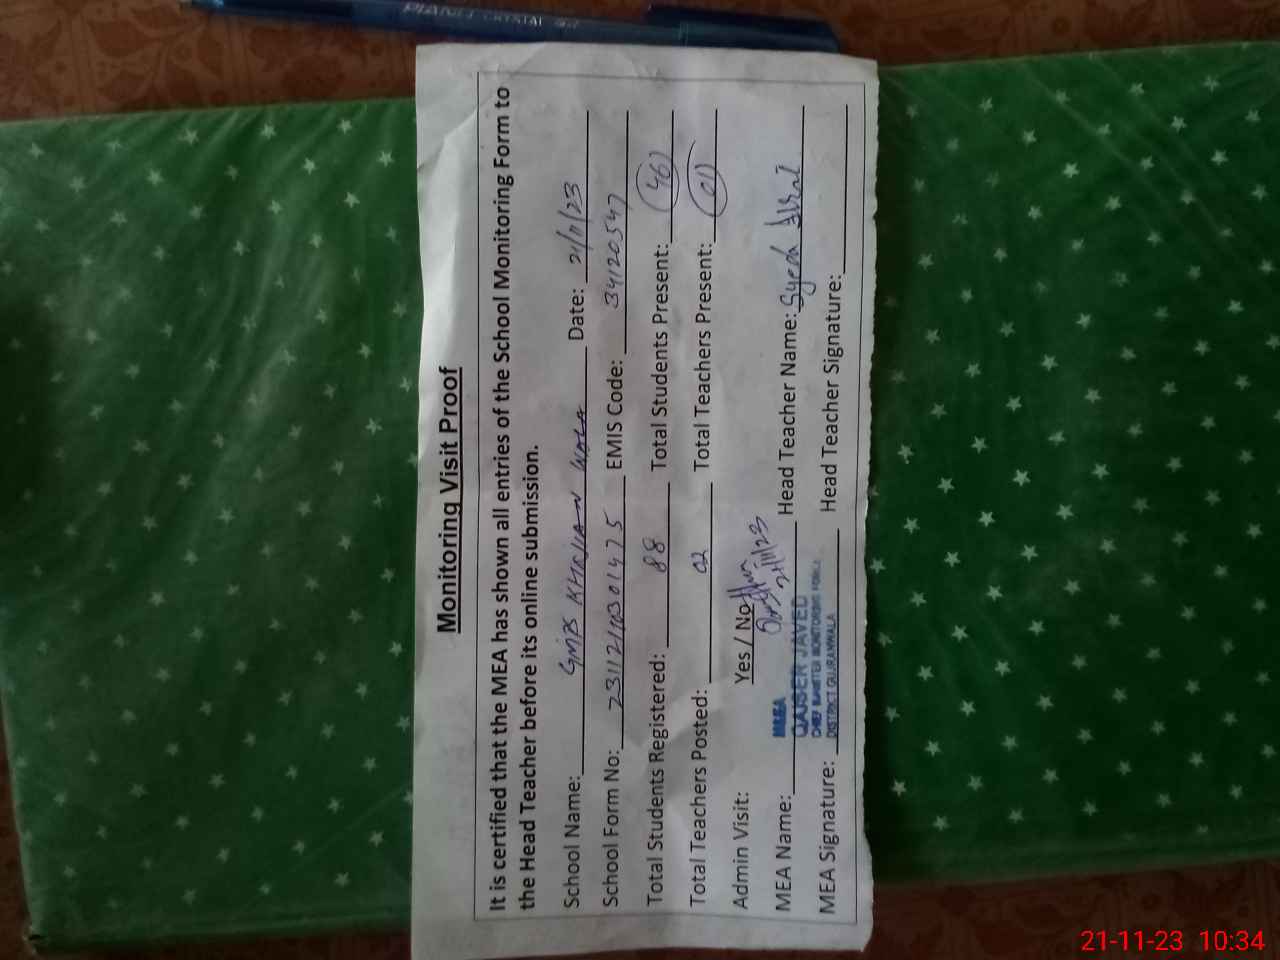 PIANO CRYSTAL
Monitoring Visit Proof
It is certified that the MEA has shown all entries of the School Monitoring Form to
the Head Teacher before its online submission.
School Name: GMPS KHAJJAN WALA Date: 21/11/23
School Form No: 23112110301475 EMIS Code: 34120547
Total Students Registered: 88 Total Students Present: 46
Total Teachers Posted: 02 Total Teachers Present: 01
Admin Visit: Yes / No
21/11/23
MEA Name: MEA Head Teacher Name: Syeda
QAISER JAVED
CHIEF MINISTER MONITORING FORCE
MEA Signature: DISTRICT GUJRANWALA Head Teacher Signature:
21-11-23 10:34